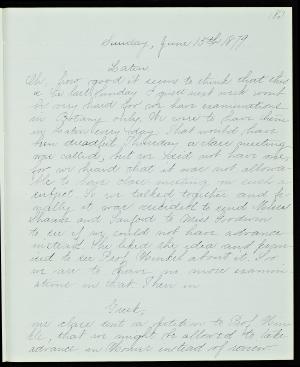 Sunday, June 15th 1879
Latin
Oh, how good it seems to think that this
is the last Sunday I guess next week wont
be very hard for we have examinations
in Botany only. We were to have them
in Latin every day. That would have
been dreadful. Thursday a class meeting
was called, but we did not have one,
for we heard that it was not allowa-
ble to have class meeting on such a
subject. So we talked together and fi-
nally it was decided to send Misses
and Sanford to Miss Goodwin
to see if we could not have advance
instead. She liked the idea and prom-
ised to see Prof. about it. So
we are to have no more examin-
ations in that. Then in
Greek,
our class sent a petition to Prof.
that we might be allowed to take
advance in Homer instead of review